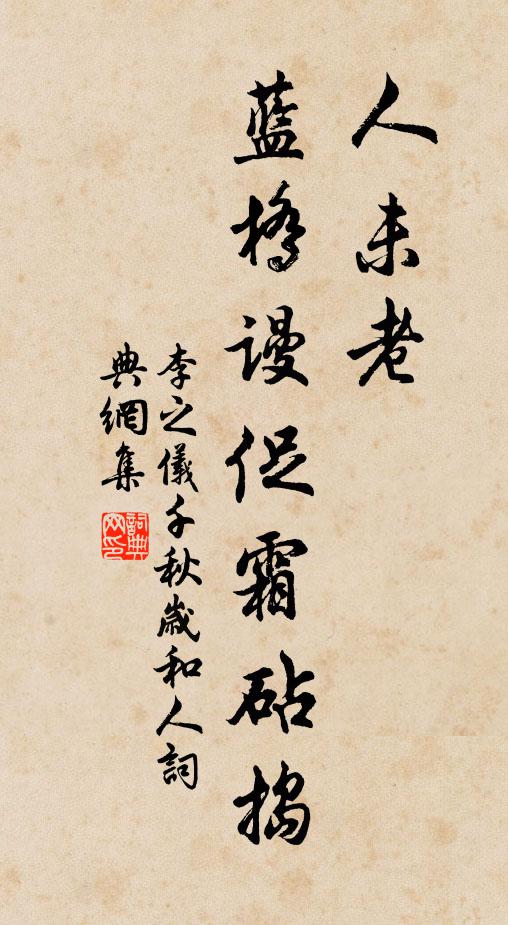 人未老
蓝桥谩促霜砧捣
李之儀千秋歲和人詞
典網集
詞典网印